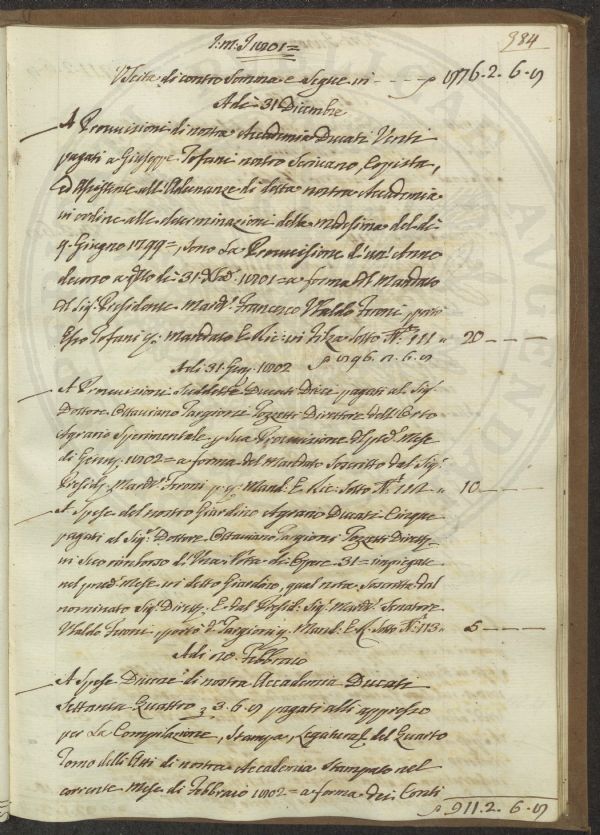 384
I: M: I 1801=
Uscita di contro Somma e Segue in - - - - 776. 2. 6. 8
A di 31 Dicembre
A Provvisioni di nostra Accademia Ducati Venti
pagati a Giuseppe Tofani nostro Scrivano, Copista,
ed Assistente all'Adunanze di detta nostra Accademia
in ordine alle determinazioni della medesima del dì
9. Giugno 1799=, sono La Provvisione d'un Anno
decorso a q.sto dì 31. Xbre 1801= a forma del Mandato
del Sig.r Presidente March.e Francesco Ubaldo Feroni, portò
Esso Tofani q. Mandato E Ric: in Filza Sotto N.o 111 " 20 - - -
Adi 31. Genn: 1802
A Provvisioni Suddette Ducati Dieci pagati al Sig.
Dottore Ottaviano Targioni Tozzetti Direttore dell'Orto
Agrario Sperimentale p Sua Provvisione del pred.o Mese
di Genn: 1802= a forma del Mandato Soscritto dal Sig.r
Presid.e March.e Feroni p q. Mand: E Ric: Sotto N.o 112 " 10 - - -
A Spese del nostro Giardino Agrario Ducati Cinque
pagati al Sig.r Dottore Ottaviano Targioni Tozzetti Dirett.e
in Suo rimborso d'Una Nota di Opere 31= impiegate
nel pred.o Mese in detto Giardino, qual nota Soscritta dal
nominato Sig.r Dirett.e E dal Presid: Sig.r March.e Senatore
Ubaldo Feroni, portò d.o Targioni q. Mand: E R. Sotto N.o 113 " 5 - - -
Febbraio
A Spese Diverse di nostra Accademia Ducati
Settanta Quattro 3. 6. 8 pagati alli appresso
per La Compilazione, Stampa, Legatura del Quarto
Tomo delli Atti di nostra Accademia Stampato nel
corrente Mese di Febbraio 1802= a forma dei Conti
911. 2. 6. 8